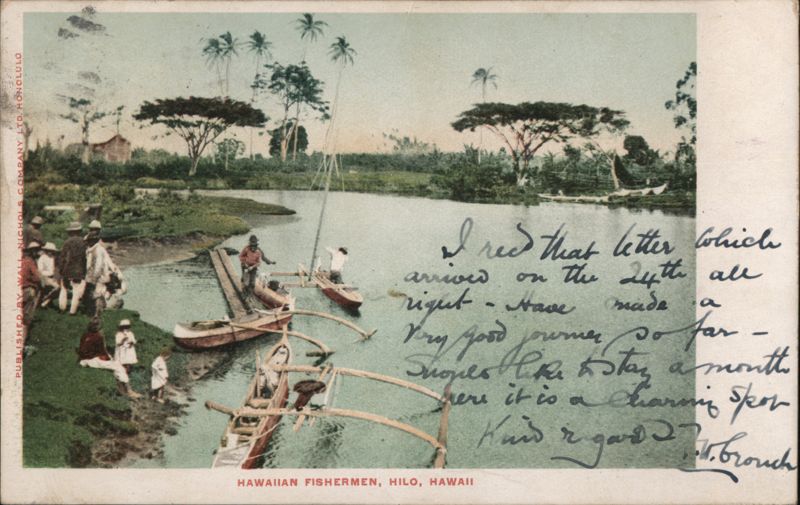 PUBLISHED BY WALL, NICHOLS COMPANY LTD. HONOLULU
I recd that letter which
arrived on the 24th all
right - Have made a
very good journey so far -
like to stay a month
here it is a charming spot
Kind regards
HAWAIIAN FISHERMEN, HILO, HAWAII